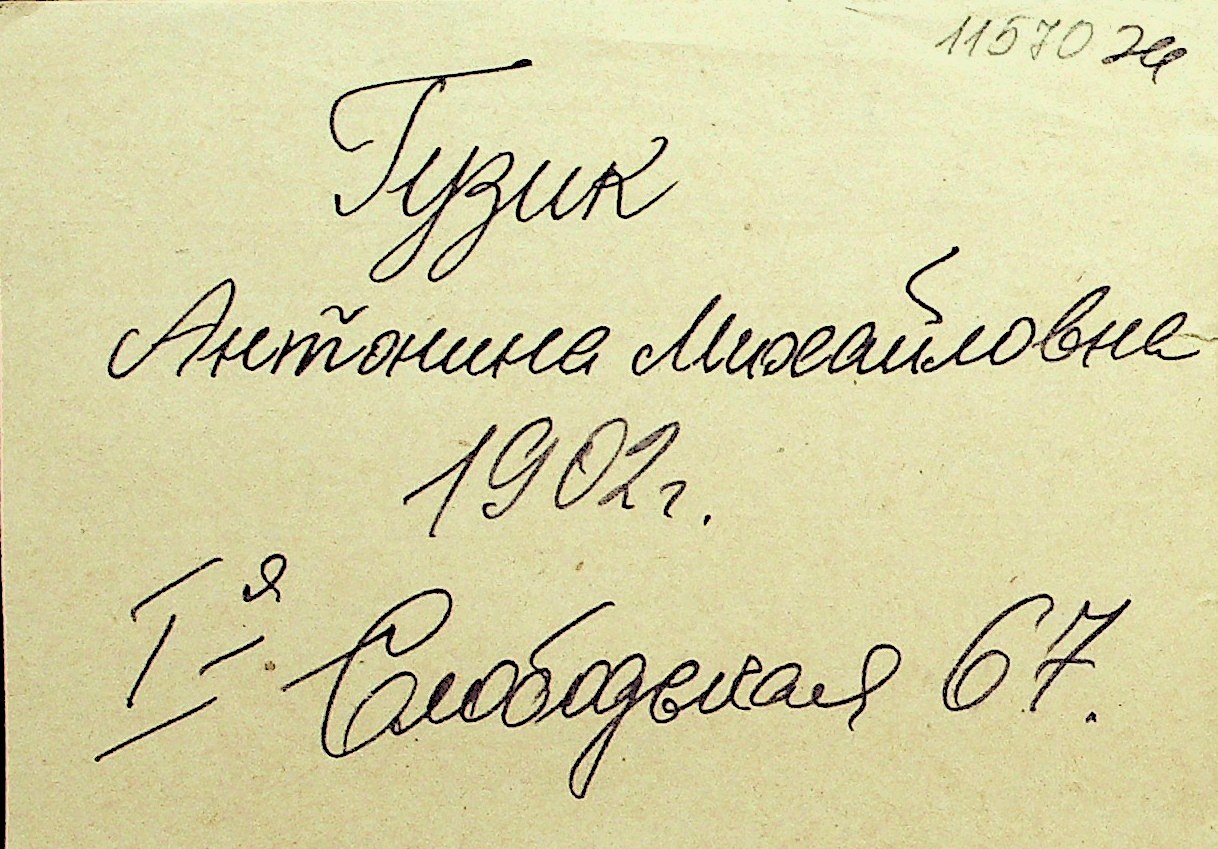 11570
Гузик
Антонина Михайловна
1902г.
I-я Слободская 67.